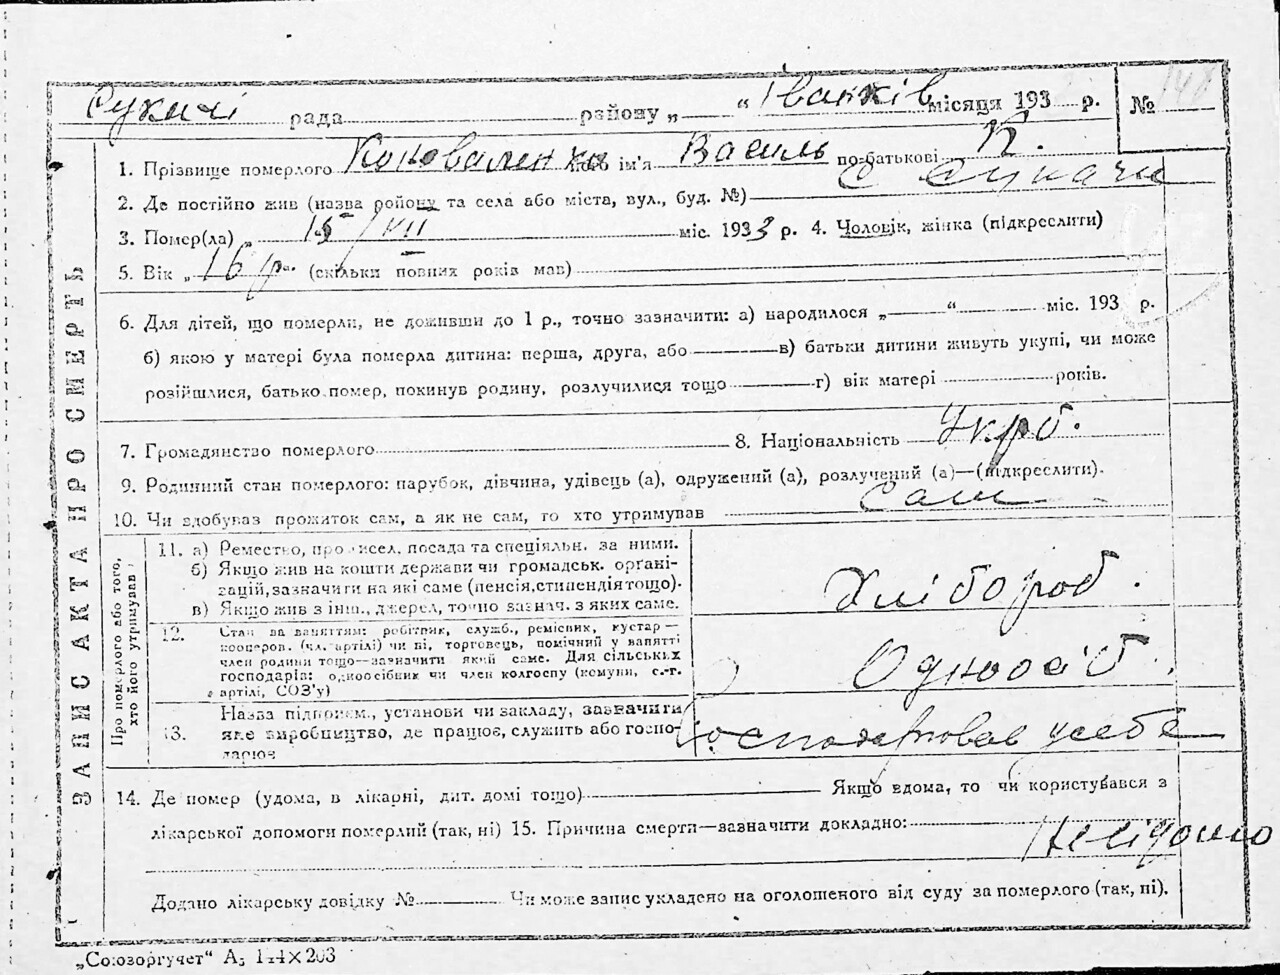 Сукачі рада районy „ “ Іванків місяця 193 р. №
1. Прізвище померлого Коноваленко його ім'я Василь по-батькові К.
2. Де постійно жив (назва району та села або міста, вул., буд. №) с Сукачи
3. Помер(ла) „ 15/VII міс. 1933 р. 4. Чоловік, жінка (підкреслити)
5. Вік „ 16 р. (скільки повних років мав)
6. Для дітей, що померли, не доживши до 1 р., точно зазначити: а) народилося „ “ міс. 193 р.
б) якою у матері була померла дитина: перша, друга, або в) батьки дитини живуть укупі, чи може
розійшлися, батько помер, покинув родину, розлучилися тощо г) вік матері років.
7. Громадянство померлого 8. Національність Укр.
9. Родинний стан померлого: парубок, дівчина, удівець (а), одружений (а), розлучений (а)—(підкреслити).
10. Чи здобував прожиток сам, а як не сам, то хто утримував сам
ЗАПИС АКТА ПРО СМЕРТЬ
Про померлого або того, хто його утримував
11. а) Ремество, промисел, посада та спеціяльн. за ними.
б) Якщо жив на кошти держави чи громадськ. органі-
зацій, зазначити на які саме (пенсія, стипендія тощо).
в) Якщо жив з інш., джерел, точно зазнач. з яких саме.
Хлібороб.
12. Стан за заняттям: робітник, служб., ремісник, кустар—
кооперов. (чл. артілі) чи ні, торговець, помічний у занятті
член родини тощо—зазначити який саме. Для сільських
господарів: одноосібник чи член колгоспу (комуни, с.-г.
артілі, СОЗ'у)
Одноосіб.
13. Назва підприєм., установи чи закладу, зазначити
яке виробництво, де працює, служить або госпо-
дарює
Господарював у себе
14. Де помер (удома, в лікарні, дит. домі тощо) Якщо вдома, то чи користувався з
лікарської допомоги померлий (так, ні) 15. Причина смерти—зазначити докладно:
Невідомо
Додано лікарську довідку № Чи може запис укладено на оголошеного від суду за померлого (так, ні).
„Союзоргучет“ А₅ 144×203